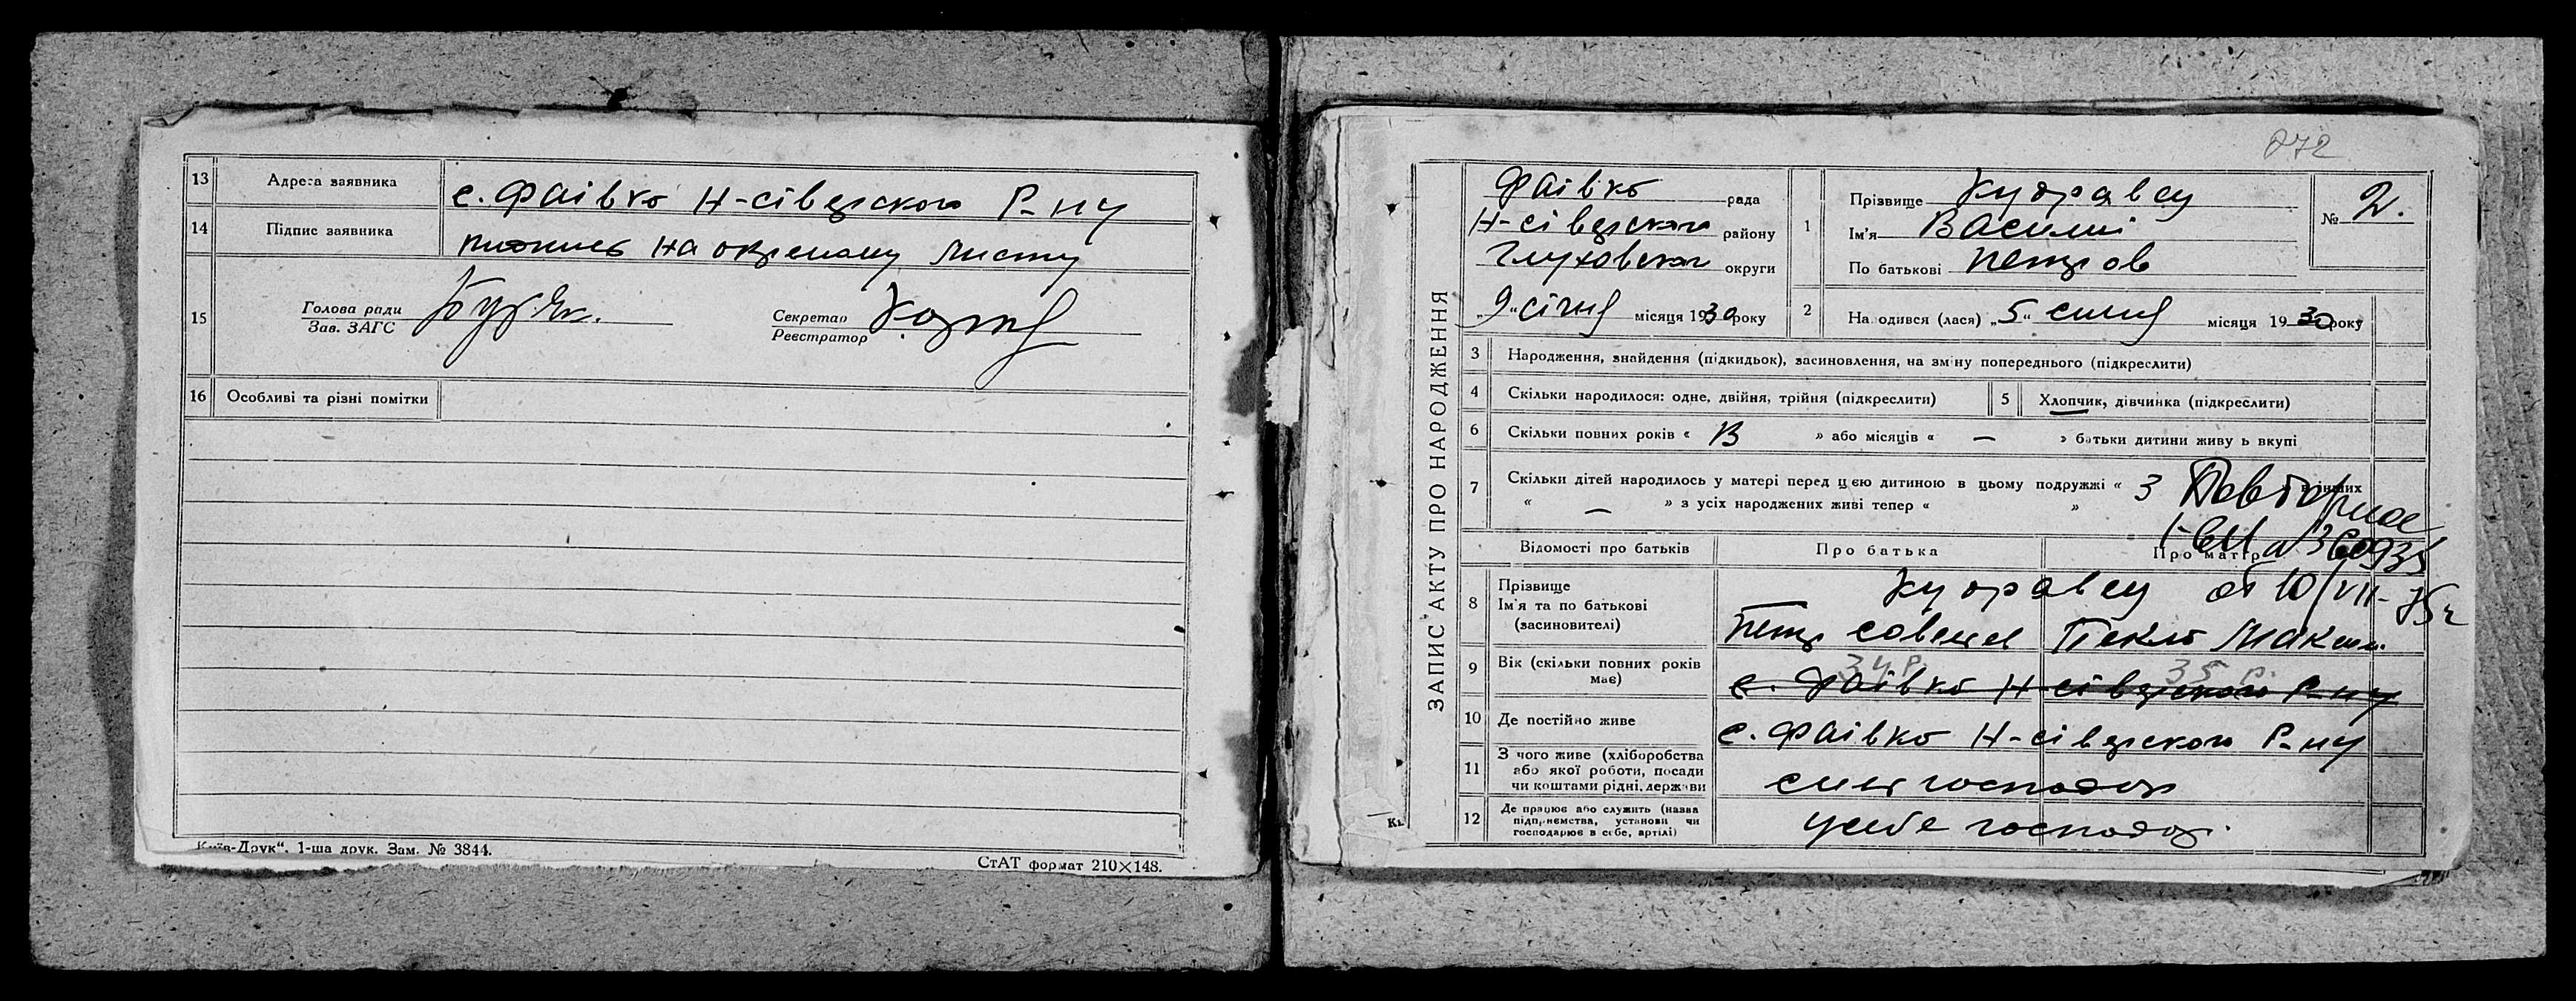 13 Адреса заявника с. Фаівко Н-сіверского Р-ну
14 Підпис заявника на окремому листу
15 Голова ради
Зав. ЗАГС
Секретар
Реєстратор
16 Особливі та різні помітки
Київ-Друк“, 1-ша друк. Зам. № 3844.
СтАТ формат 210×148.
872
ЗАПИС АКТУ ПРО НАРОДЖЕННЯ
Фаівко рада
Н-сіверского району
Глуховскої округи
„9“ січня місяця 1930 року
1 Прізвище
Ім'я Василий
По батькові Петров
№ 2.
2 Народився (лася) „5“ січня місяця 1930 року
3 Народження, знайдення (підкидьок), засиновлення, на зміну попереднього (підкреслити)
4 Скільки народилося: одне, двійня, трійня (підкреслити)
5 Хлопчик, дівчинка (підкреслити)
6 Скільки повних років « » або місяців « — » батьки дитини живуть вкупі
7 Скільки дітей народилось у матері перед цією дитиною в цьому подружжі « 3 в інших
« — » з усіх народжених живі тепер « »
Повторное
от 10/VII-75г
Відомості про батьків
Про батька
Про матір
8 Прізвище
Ім'я та по батькові
(засиновителі)
Петр Савелев
Текля Максим.
9 Вік (скільки повних років має)
34 р.
35 р.
с. Фаівко Н-сіверского Р-ну
10 Де постійно живе
с. Фаівко Н-сіверского Р-ну
11 З чого живе (хліборобства
або якої роботи, посади
чи коштами рідні, держави
12 Де працює або служить (назва
підприємства, установи чи
господарює в себе, артілі)